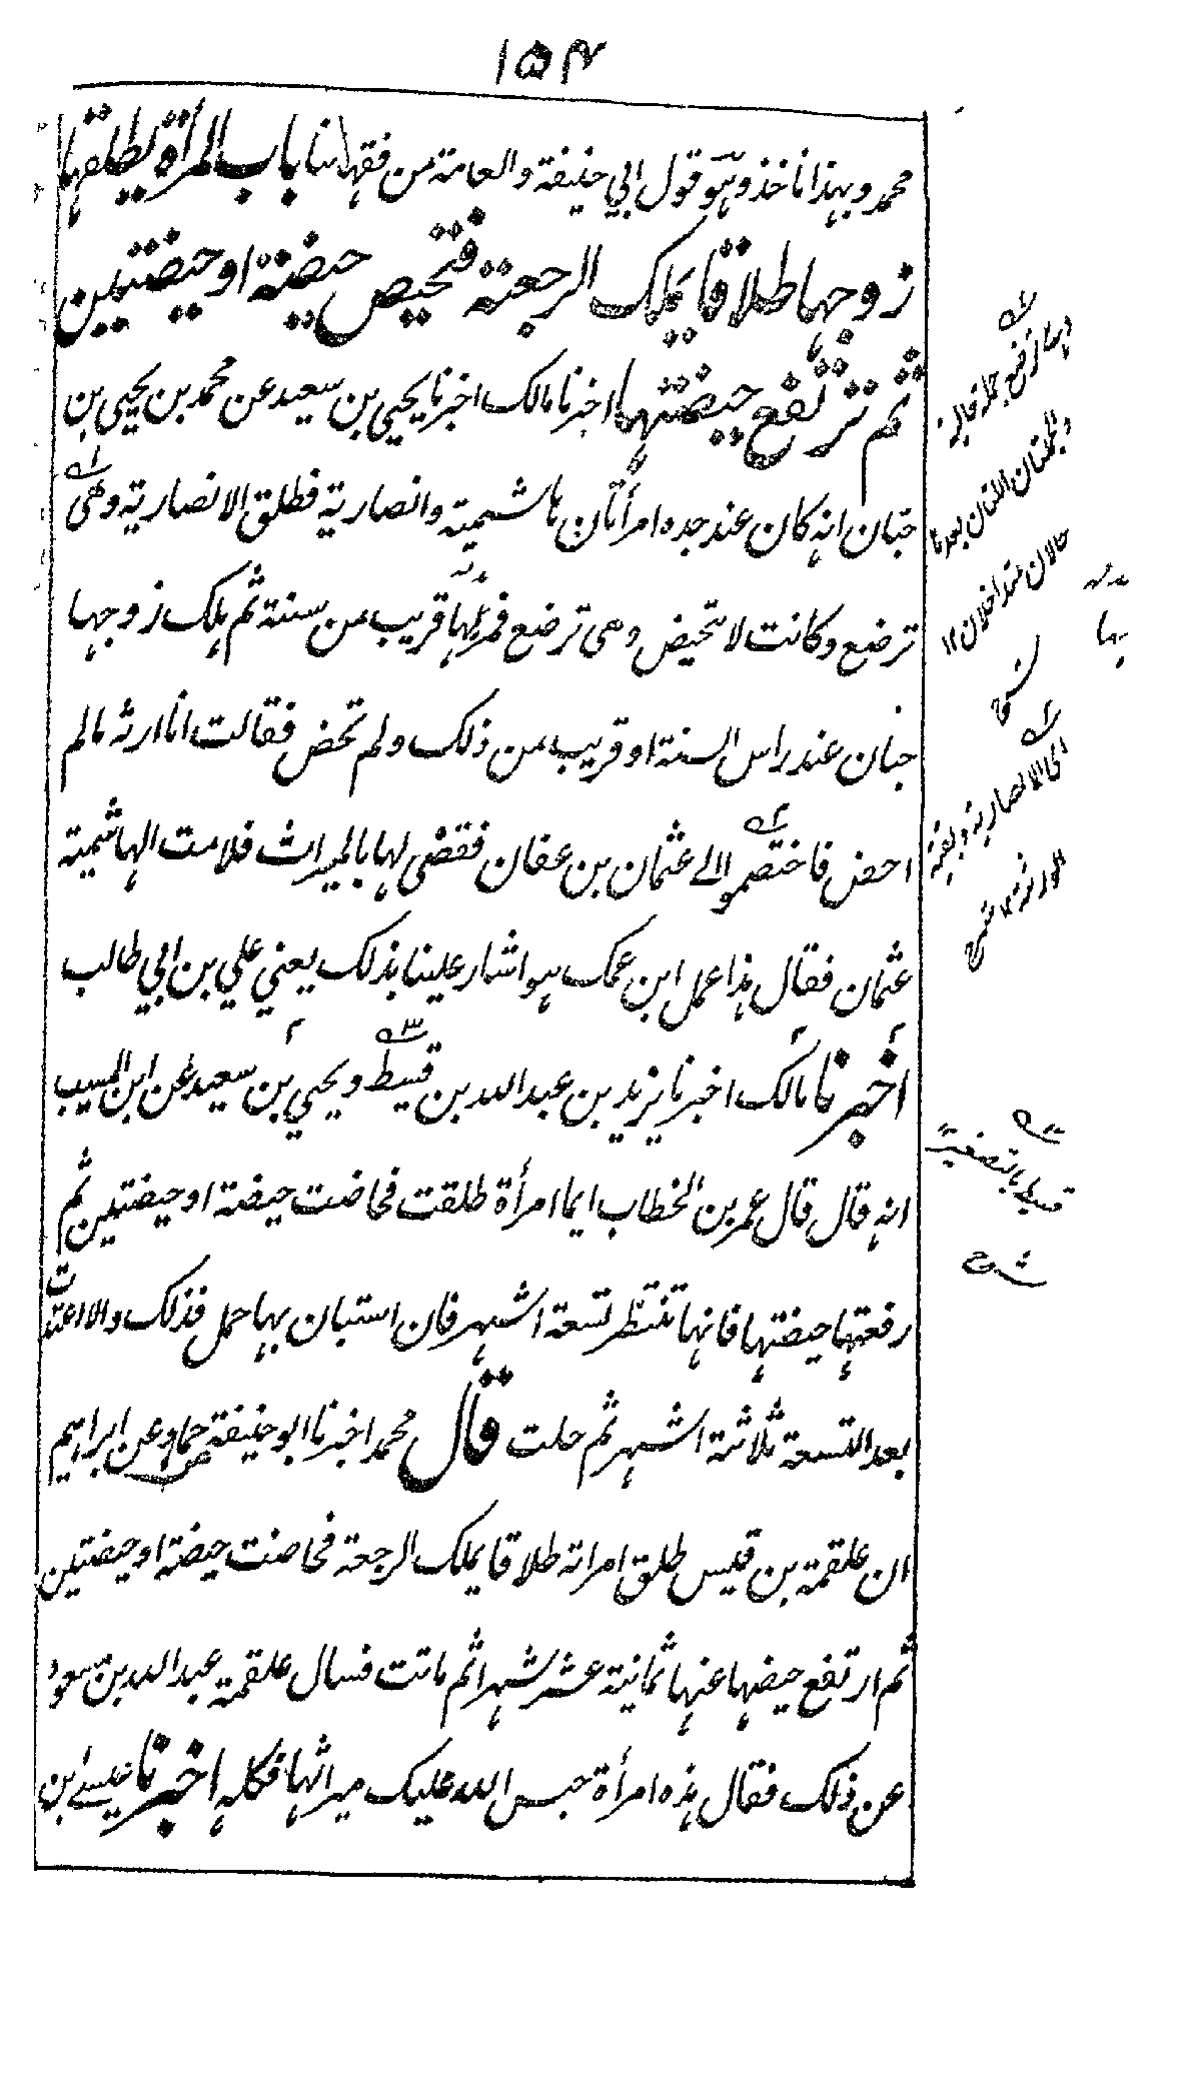 ۱۵۴
محمد وبهذا ناخذ وهو قول ابي حنيفة والعامة من فقهائنا باب المرأة يطلقها
زوجها طلاقا يملك الرجعة فتحيض حيضة او حيضتين
ثم ترتفع حيضتها اخبرنا مالك اخبرنا يحيي بن سعيد عن محمد بن يحيى بن
حبان انه كان عند جده امرأتان هاشمية وانصارية فطلق الانصارية وهى
ترضع وكانت لا تحيض وهى ترضع فمر بها قريب من سنة ثم هلك زوجها
حبان عند راس السنة او قريب من ذلك ولم تحض فقالت انا ارثه مالم
احض فاختصموا الے عثمان بن عفان فقضى لها بالميراث فلامت الهاشمية
عثمان فقال هذا عمل ابن عمك هو اشار علينا بذلك يعني علي بن ابي طالب
اخبرنا مالك اخبرنا يزيد بن عبد الله بن قسيط ويحيي بن سعيد عن ابن المسيب
انه قال قال عمر بن الخطاب ايما امرأة طلقت فحاضت حيضة او حيضتين ثم
رفعتها حيضتها فانها تنتظر تسعة اشهر فان استبان بها حمل فذلك والا اعتدت
بعد التسعة ثلاثة اشهر ثم حلت قال محمد اخبرنا ابو حنيفة عن حماد عن ابراهيم
ان علقمة بن قيس طلق امراته طلاقا يملك الرجعة فحاضت حيضة او حيضتين
ثم ارتفع حيضها عنها ثمانية عشر شهرا ثم ماتت فسال علقمة عبد الله بن مسعود
عن ذلك فقال هذه امرأة حبس الله عليك ميراثها فكله اخبرنا عيسے بن
والجملتان اللتان بعدها
حالان متداخلان ۱۲
بها
اى الانصارية وبقية
الورثة ۱۲
قسيط بالتصغير